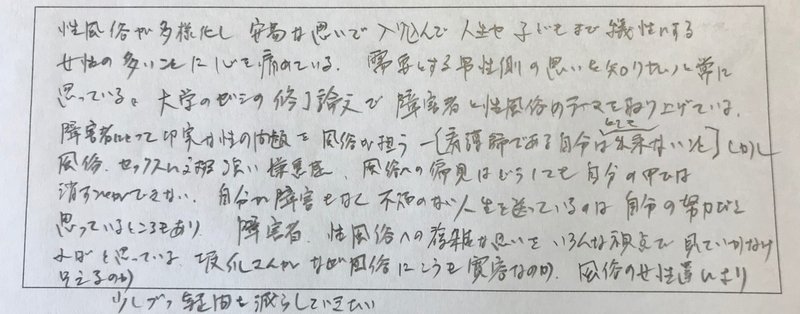 性風俗が多様化し 安易な思いで入り込んで人生や子どもまで犠牲にする
女性の多いことに心を痛めている。 需要とする男性側の思いを知りたいと常に
思っている。大学のゼミの修了論文で 障害者と性風俗のテーマを取り上げている。
障害者にとって切実な性の問題を風俗が担う ―[看護師である自分は出来ないこと] しかし
として
風俗、セックスに対する強い嫌悪感、風俗への偏見はどうしても自分の中では
消すことができない。 自分が障害もなく 不知のない人生を送っているのは 自分の努力だと
思っているところもあり 障害者、性風俗への複雑な思いを いろんな視点で見ていかなけ
ればと思っている 坂爪さんがなぜ風俗にこうも寛容なのか、風俗の女性達に
言えるのか
少しずつ疑問を減らしていきたい